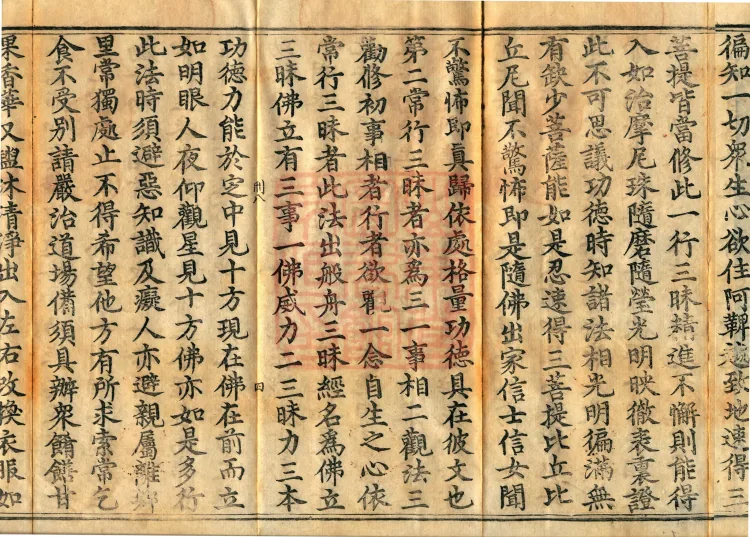 徧知一切衆生心欲住阿鞞䟦致地速得三
菩提皆當修此一行三昧精進不懈則能得
入如治摩尼珠隨磨隨瑩光明映徹表裏證
此不可思議功德時知諸法相光明徧滿無
有缺少菩薩能如是忍速得三菩提比丘比
丘尼聞不驚怖即是隨佛出家信士信女聞
不驚怖即真歸依處格量功德具在彼文也
第二常行三昧者亦為三一事相二觀法三
勸修初事相者行者欲觀一念自生之心依
常行三昧者此法出般舟三昧經名為佛立
三昧佛立有三事一佛威力二三昧力三本
荆八 四
功德力能於定中見十方現在佛在前而立
如明眼人夜仰觀星見十方佛亦如是多行
此法時須避惡知識及癡人亦避親屬離鄉
里常獨處止不得希望他方有所求索常乞
食不受別請嚴治道場備須具辦衆餚饍甘
果香華又盥沐清淨出入左右改換衣服如